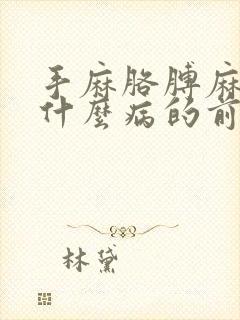 手麻胳膊麻
什麼病的前
林黛